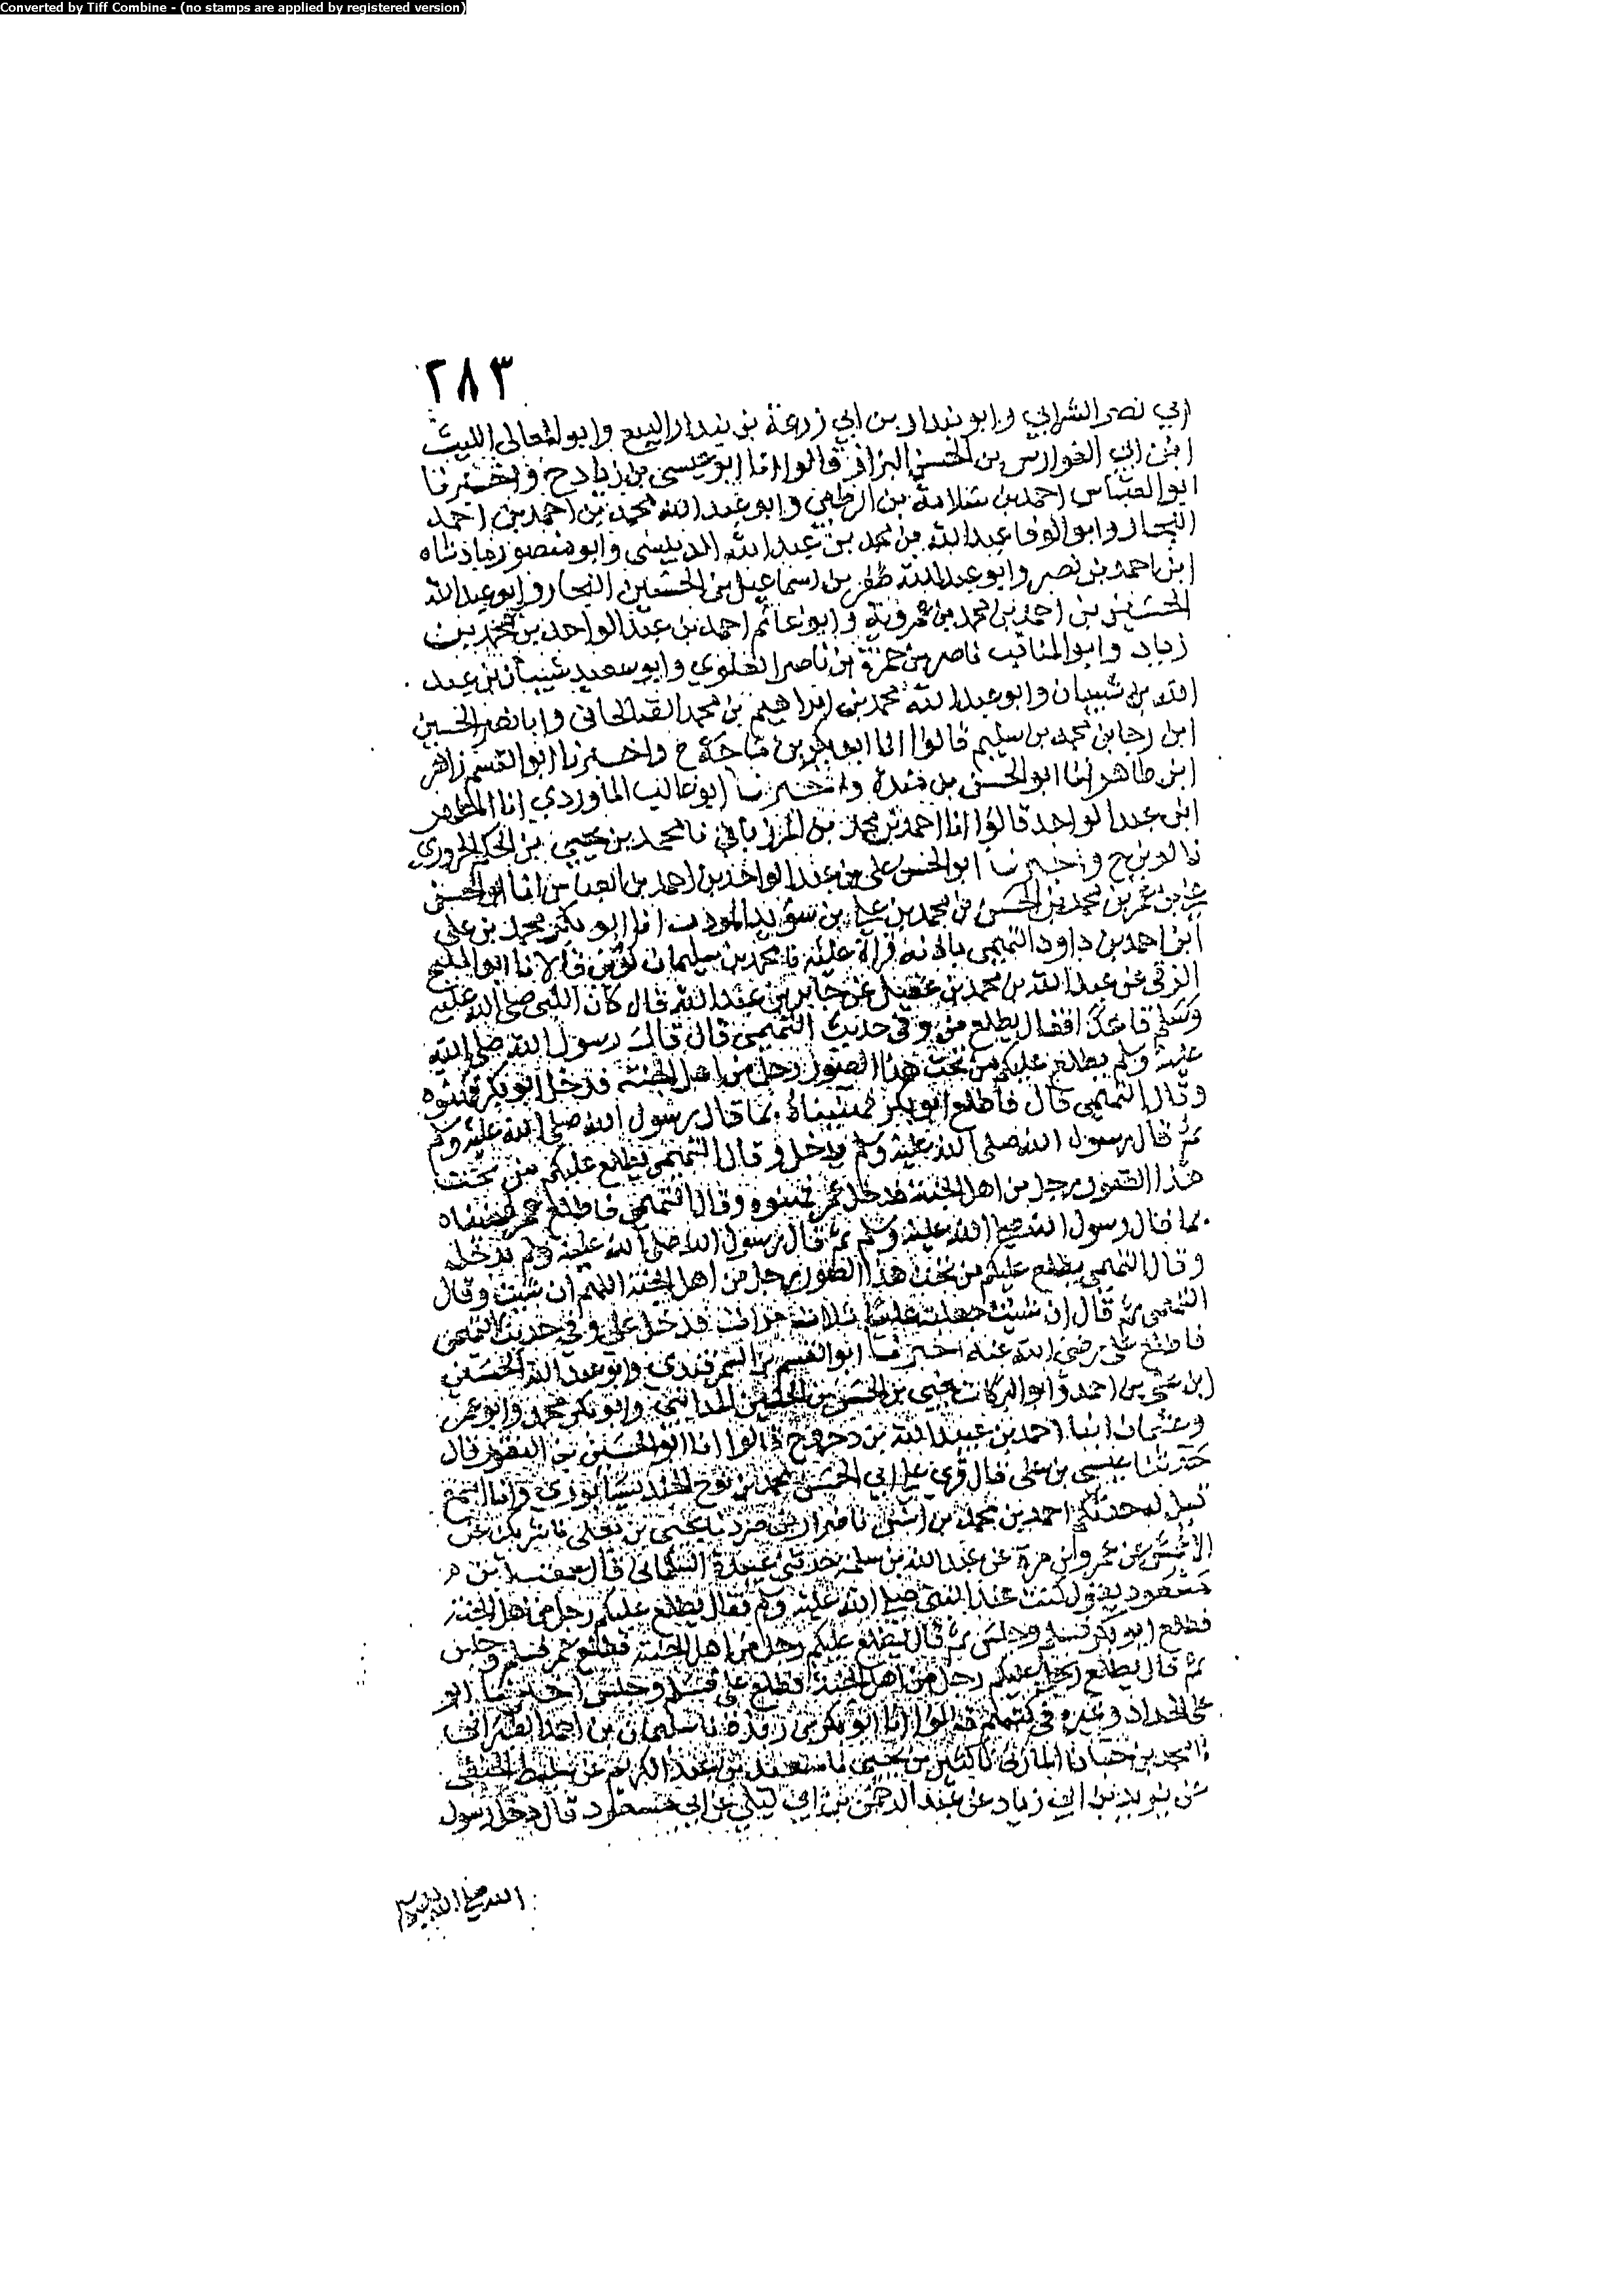 Converted by Tiff Combine - (no stamps are applied by registered version)
٢٨٣
ابي نصر الشرابي وابو بندار بن ابي زرعة بن بندار البيع وابو المعالي الليث
ابن ابي الفوارس بن الحسن البزاز قالوا انا ابو عيسى بن زياد ح واخبرنا
ابو العباس احمد بن سلامة بن الرطبي وابو عبد الله محمد بن احمد بن احمد
النجار وابو الوفا عبد الله بن محمد بن عبد الله وابو منصور
ابن احمد بن نصر وابو عبد الله ظفر بن اسماعيل بن الحسين النجار وابو عبد الله
الحسين بن احمد بن محمد بن عمرويه وابو غانم احمد بن عبد الواحد بن محمد بن
زياد وابو المناقب ناصر بن حمزة بن ناصر العلوي وابو سعيد شيبان بن عبد
الله بن شيبان وابو عبد الله محمد بن ابراهيم بن محمد وابا نصر الحسين
ابن رجا بن محمد بن سليم قالوا انا ابو بكر بن ماجة ح واخبرنا ابو القسم زاهر
ابن طاهر انا ابو الحسن بن مندة واخبرنا ابو غالب الماوردي انا المطهر
ابن عبد الواحد قالوا انا احمد بن محمد بن المرزباني نا محمد بن يحيى بن الحكم الحزوري
نا لوين ح واخبرنا ابو الحسن علي بن عبد الواحد بن احمد بن العباس انا ابو الحسن
علي بن عمر بن محمد بن الحسن نا محمد بن علي بن سويد المودب انا ابو بكر محمد بن علي
ابن احمد بن داود التميمي باذنه قراة عليه نا محمد بن سليمان لوين قالا نا ابو المليح
الرقي عن عبد الله بن محمد بن عقيل عن جابر بن عبد الله قال كان النبي صلى الله عليه
وسلم قاعدا فقال يطلع من وفي حديث التميمي قال قال رسول الله صلى الله
عليه وسلم يطلع عليكم من تحت هذا الصور رجل من اهل الجنة فدخل ابو بكر فهنوه
وقال التميمي قال فاطلع ابو بكر فهنيناه بما قال رسول الله صلى الله عليه وسلم
ثم قال رسول الله صلى الله عليه وسلم يدخل وقال التميمي يطلع عليكم من تحت
هذا الصور رجل من اهل الجنة فدخل عمر فهنوه وقال التميمي فاطلع عمر فهنيناه
بما قال رسول الله صلى الله عليه وسلم ثم قال رسول الله صلى الله عليه وسلم يدخل
وقال التميمي يطلع عليكم من تحت هذا الصور رجل من اهل الجنة اللهم ان شيت وقال
التميمي ثم قال ان شيت جعلته عليا ثلاث مرات فدخل علي وفي حديث التميمي
فاطلع علي رضي الله عنه اخبرنا ابو القسم بن السمرقندي وابو عبد الله الحسين
ابن علي بن احمد وابو البركات يحيى بن الحسن بن الحسين المدائني وابو بكر محمد وابو عمر
وعثمان ابنا احمد بن عبيد الله بن دحروج قالوا انا ابو الحسين بن النقور قال
حدثنا عيسى بن علي قال قري على ابي الحسن محمد بن نوح الجنديسابوري وانا اسمع
قيل له حدثكم احمد بن محمد بن انس نا ضرار بن صرد نا يحيى بن يعلى نا شريك عن
الاعمش عن عمرو بن مرة عن عبد الله بن سلمة حدثني عبيدة السلماني قال سمعت ابن
مسعود يقول كنت عند النبي صلى الله عليه وسلم فقال يطلع عليكم رجل من اهل الجنة
فطلع ابو بكر فسلم وجلس ثم قال يطلع عليكم رجل من اهل الجنة فطلع عمر فسلم وجلس
ثم قال يطلع عليكم رجل من اهل الجنة فطلع علي فسلم وجلس اخبرنا ابو
علي الحداد وغيره في كتبهم قالوا انا ابو بكر بن ريذة نا سليمان بن احمد الطبراني
نا محمد بن حيان المازني نا كثير بن يحيى نا سعيد بن عبد الكريم عن سليط الحنفي
عن يزيد بن ابي زياد عن عبد الرحمن بن ابي ليلى عن ابي مسعود قال دخل رسول
الله صلى الله عليه وسلم